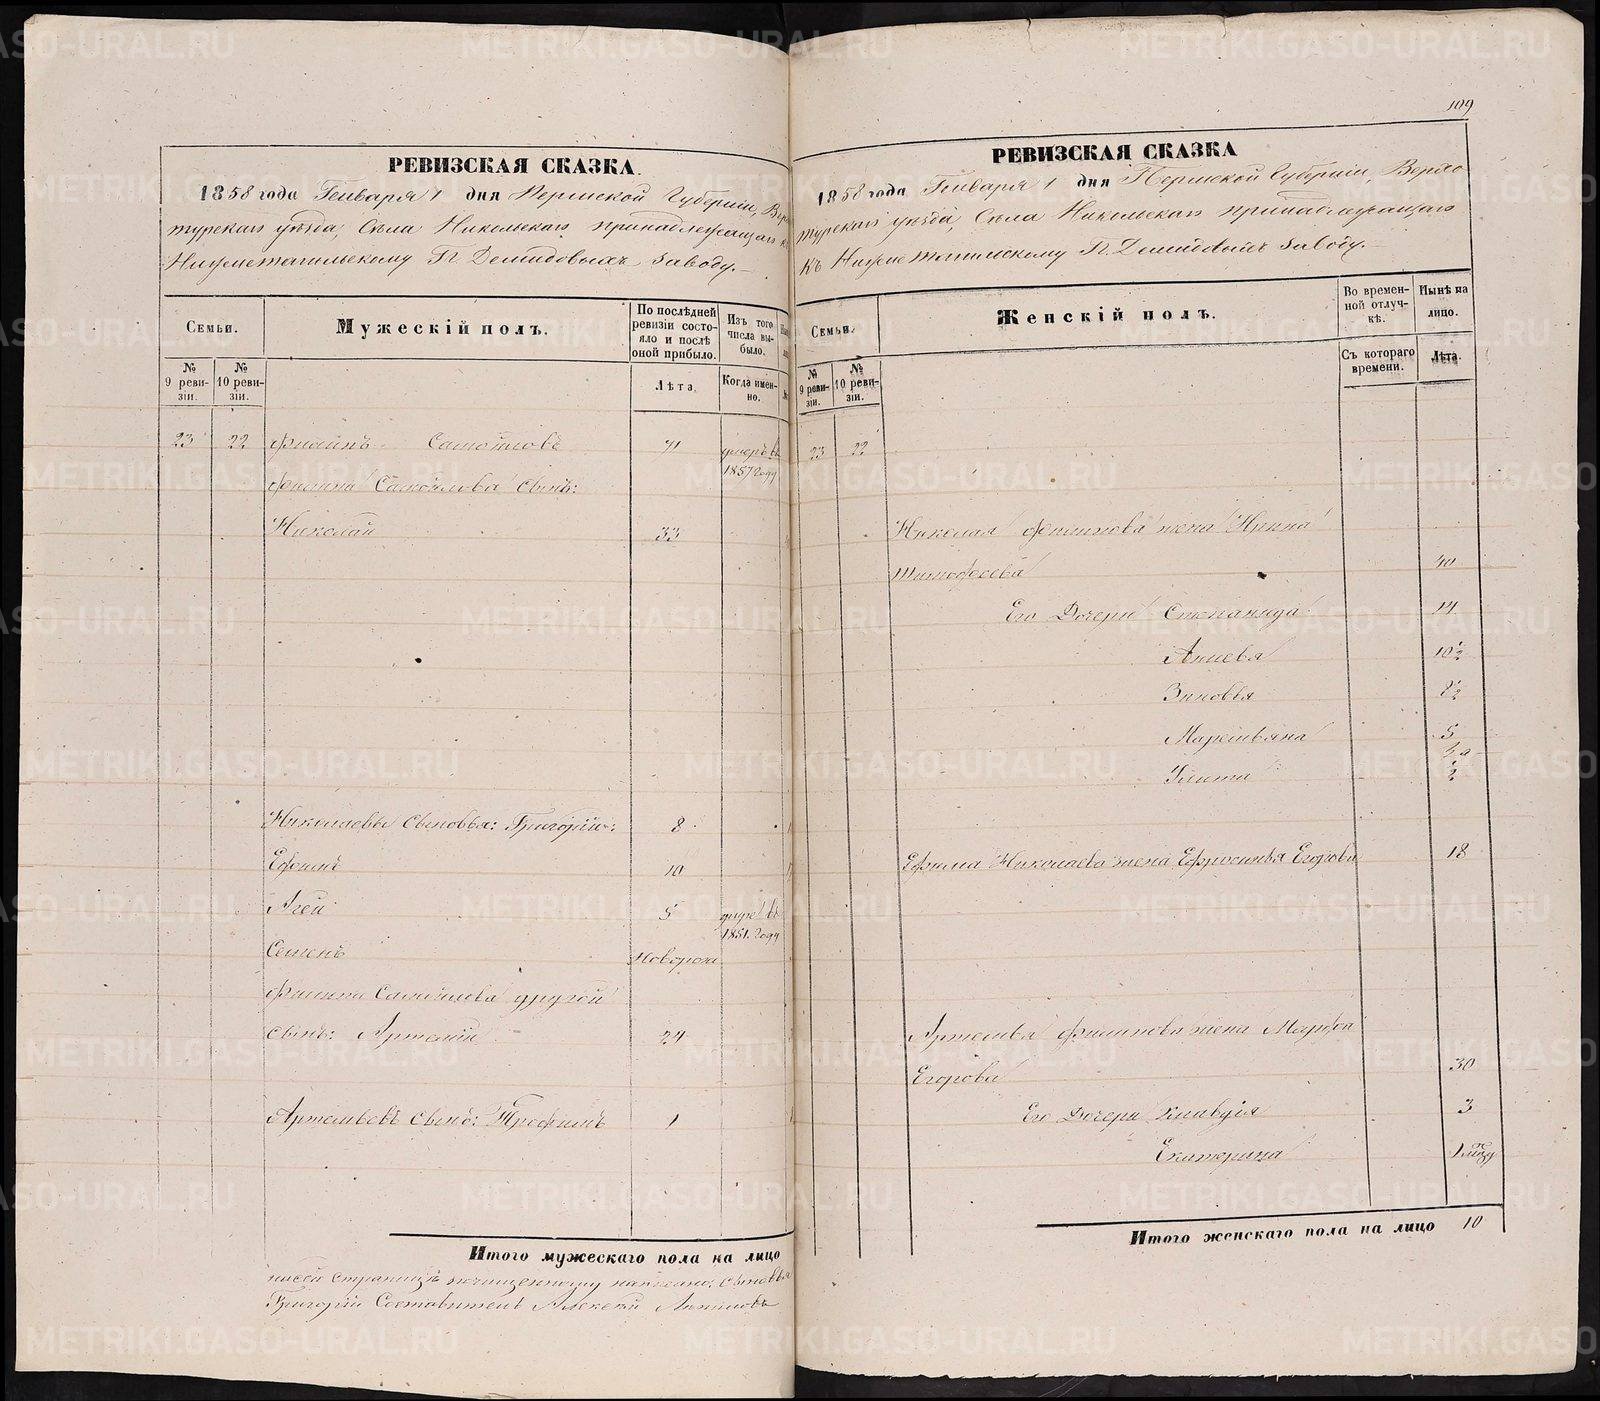 РЕВИЗСКАЯ СКАЗКА.
1858 года Генваря 1 дня Пермской Губерніи, Верхо
турскаго уѣзда, Села Никольскаго принадлежащаго къ
Нижнетагильскому Гг. Демидовыхъ заводу.
Семьи.
Мужескій полъ.
По послѣдней ревизіи состо-
яло и послѣ
оной прибыло.
Изъ того
числа вы-
было.
№
9 реви-
зіи.
№
10 реви-
зіи.
Лѣта.
Когда имен-
но.
23 22 Филипъ Самойловъ 71 умеръ въ
1857 году
Филипа Самойлова сынъ:
Николай 33
Николаевы сыновья: Григорій: 8
Ефимъ 10
Агей 5 умре въ
1851. году
Семенъ Новорож
Филипа Самойлова другой
сынъ: Артемій 24
Артемьевъ сынъ: Трофимъ 1
Итого мужескаго пола на лицо
насей страницѣ почищенному написано: сыновья
Григорій Составитель Алексей
109
РЕВИЗСКАЯ СКАЗКА
1858 года Генваря 1 дня Пермской Губерніи, Верхо
турскаго уѣзда, Села Никольскаго принадлежащаго
къ Нижнетагильскому Гг. Демидовыхъ заводу.
Семьи.
Женскій полъ.
Во времен-
ной отлуч-
кѣ.
Нынѣ на
лицо.
№
9 реви-
зіи.
№
10 реви-
зіи.
Съ котораго
времени.
Лѣта.
23 22
Николая Филипова жена Ирина
Тимофеева 40
Его Дочери Степанида 14
Анисья 10½
Зиновья 8½
Маремьяна 5
Улита ½
Ефима Николаева жена Ефросинья Егорова 18
Артемья Филипова жена Марфа
Егорова 30
Его Дочери Клавдія 3
Екатерина
Итого женскаго пола на лицо 10
METRIKI.GASO-URAL.RU